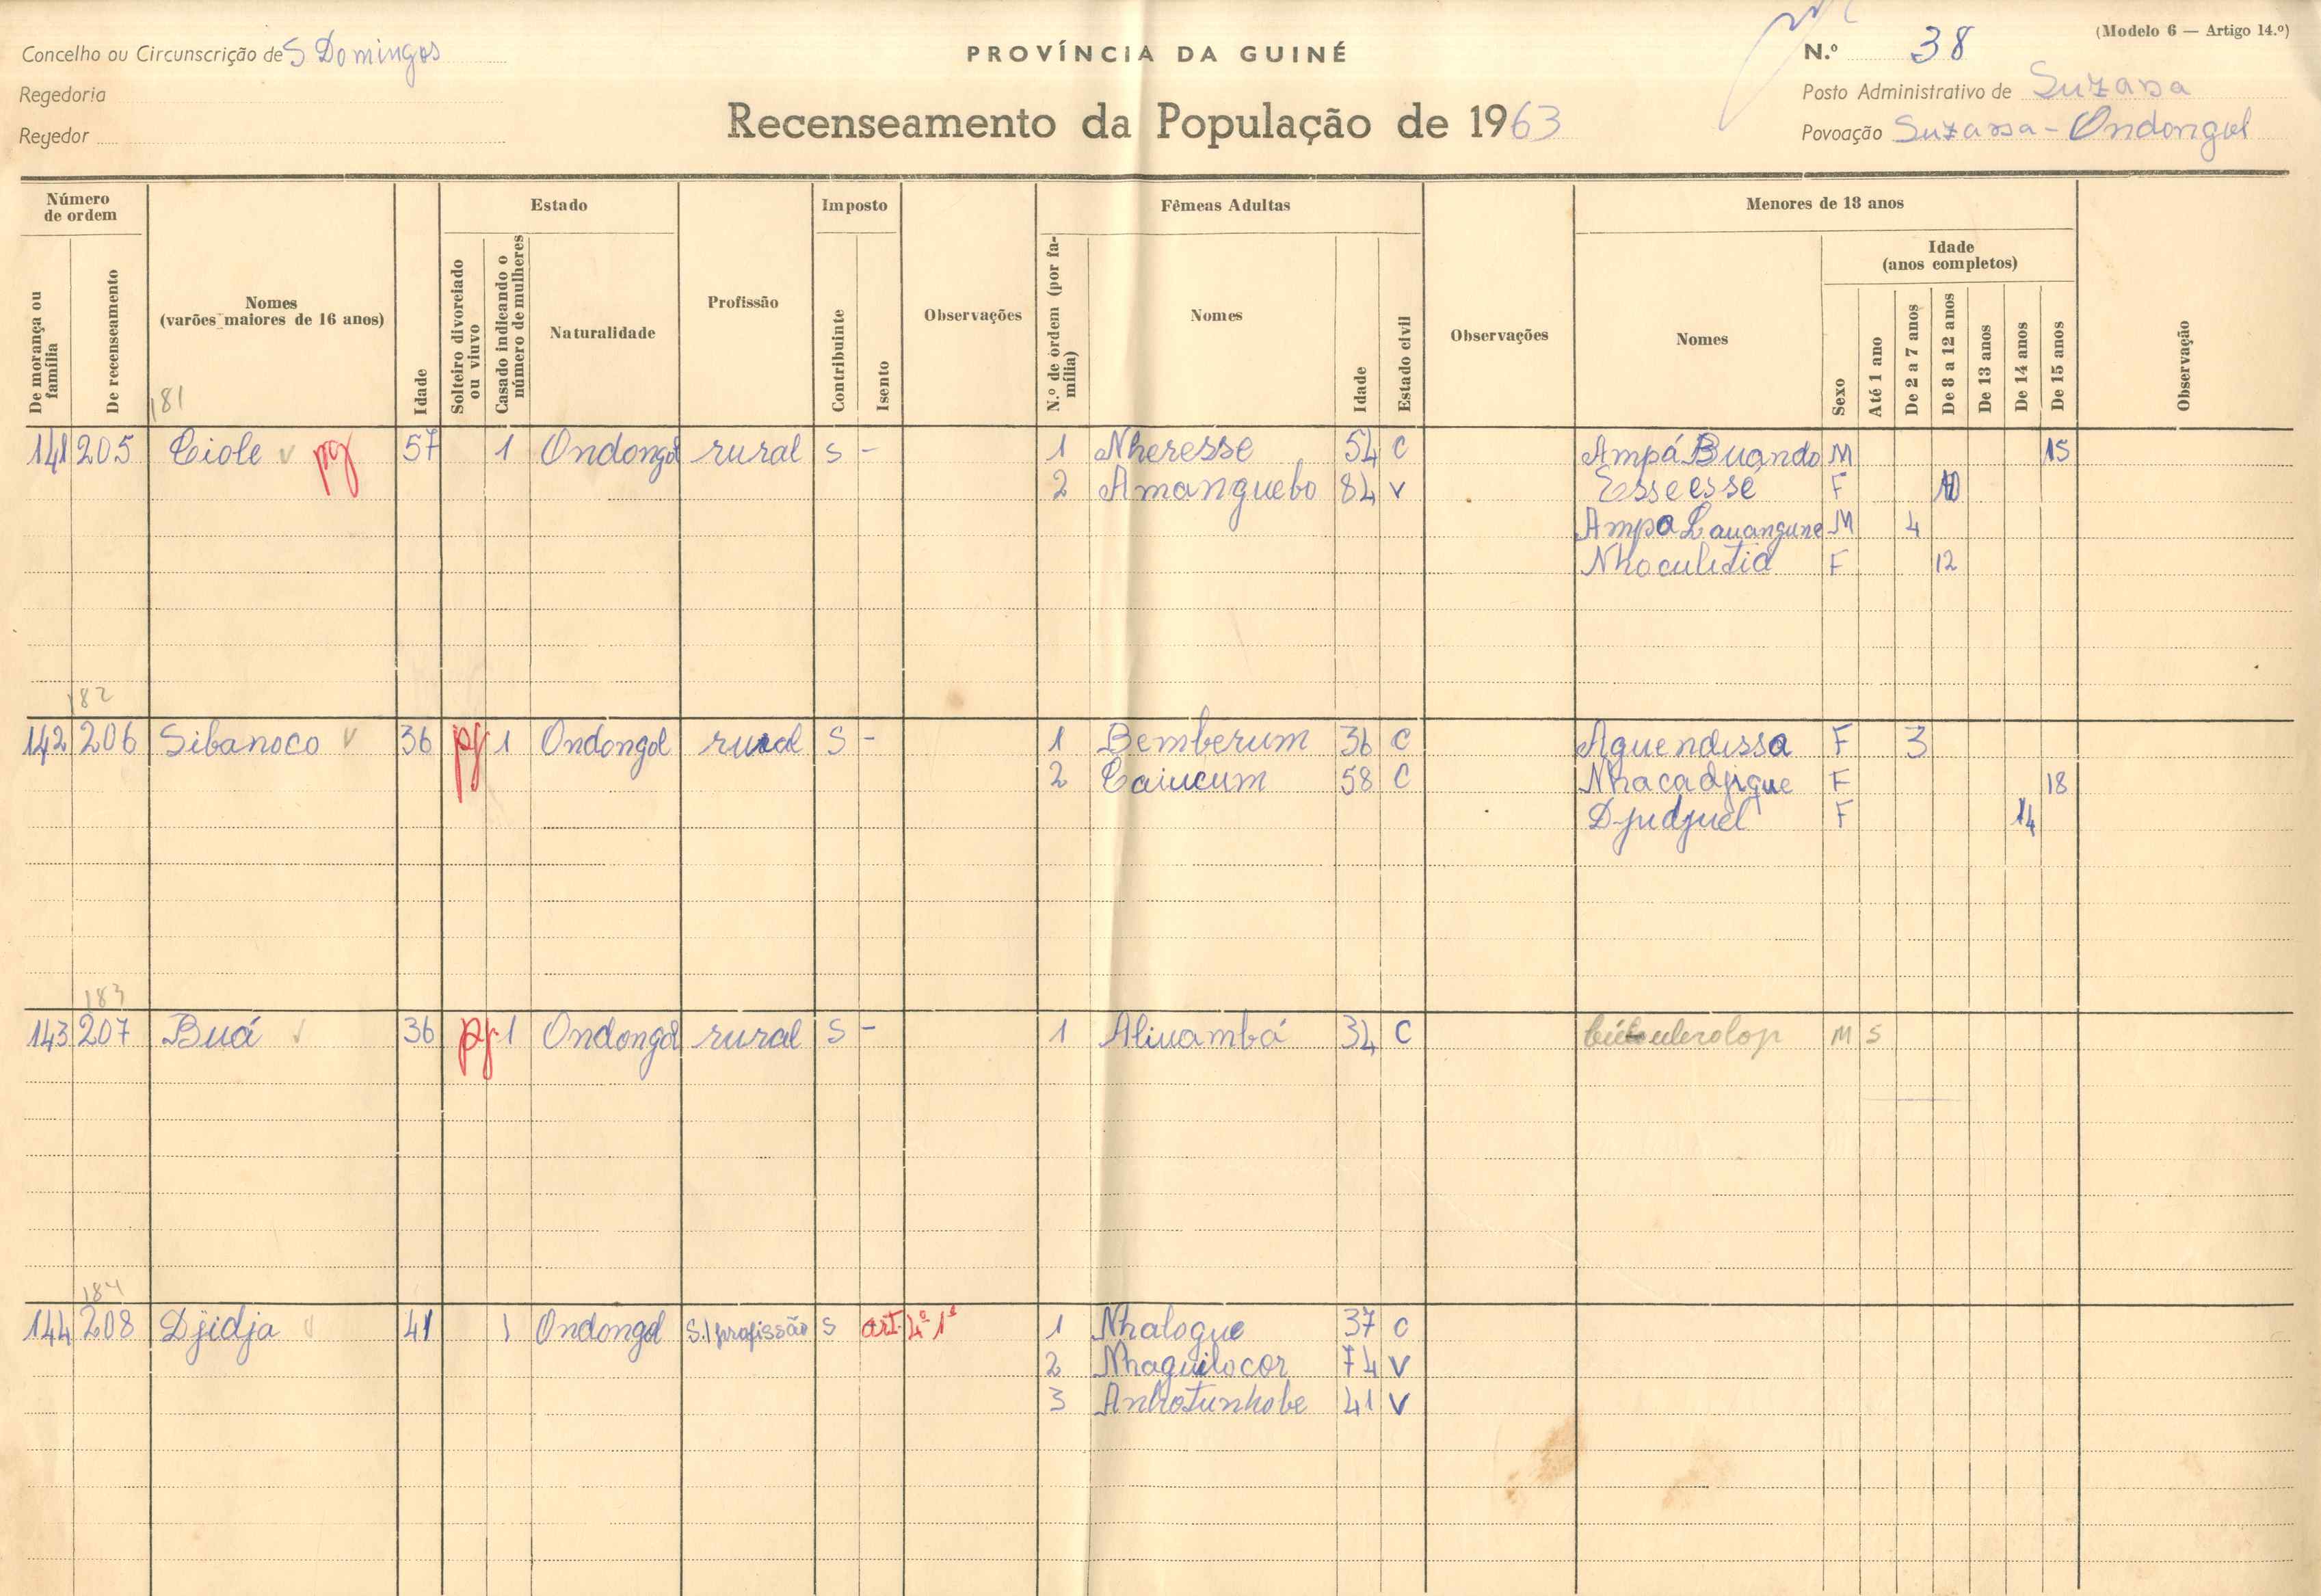 (Modelo 6 — Artigo 14.º)
Concelho ou Circunscrição de S Domingos
PROVÍNCIA DA GUINÉ
N.º 38
Regedoria
Posto Administrativo de Suzana
Recenseamento da População de 1963
Regedor
Povoação Suzana - Ondongol
Número de ordem
Estado
Imposto
Fêmeas Adultas
Menores de 18 anos
De morança ou família
De recenseamento
Nomes (varões maiores de 16 anos)
Idade
Solteiro divorciado ou viuvo
Casado indicando o número de mulheres
Naturalidade
Profissão
Contribuinte
Isento
Observações
N.º de ordem (por família)
Nomes
Idade
Estado civil
Observações
Nomes
Sexo
Idade (anos completos)
Até 1 ano
De 2 a 7 anos
De 8 a 12 anos
De 13 anos
De 14 anos
De 15 anos
Observação
181
141 205 Ciole v pg 57 1 Ondongol rural s - 1 Nheresse 54 C Ampá Buando M 15
2 Amanguebo 84 v Esseessé F 10
Ampa Lauangune M 4
Nhoculitia F 12
182
142 206 Sibanoco v 36 pg 1 Ondongol rural S - 1 Bemberum 36 C Aguendissa F 3
2 Caiucum 58 C Nhacadjique F 18
Djudjuel F 14
183
143 207 Buá v 36 pg 1 Ondongol rural S - 1 Aliuambá 34 C M S
184
144 208 Djidja v 41 1 Ondongol S./profissão s art. 4º 1º 1 Nhalogue 37 C
2 Nhaguilocor 74 V
3 Anhotunhobe 41 V